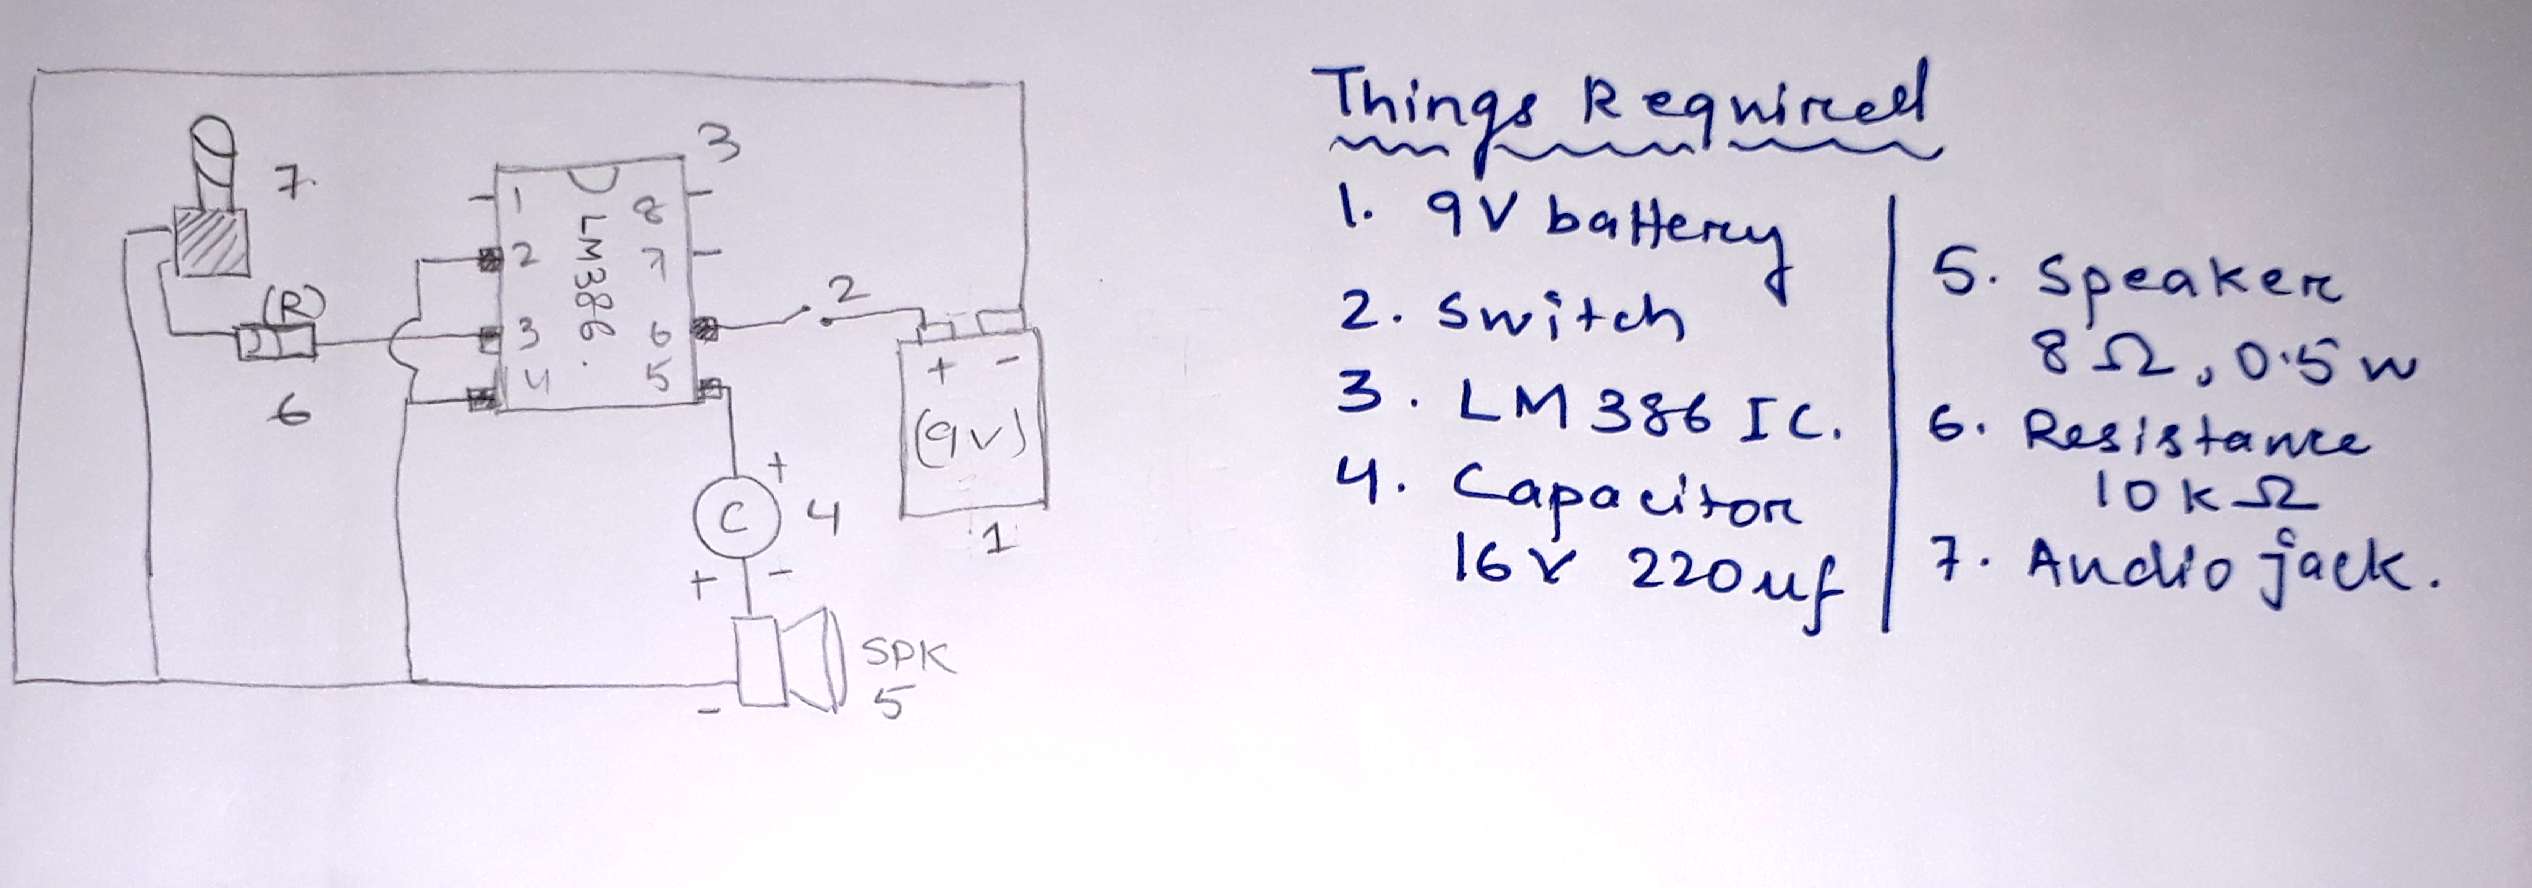 7.
3
1
8
2
7
LM386.
(R)
3
6
2
4
5
6
+ -
(9v)
+
C
4
1
+ -
SPK
-
5
Things Required
1. 9V battery
2. Switch
3. LM386 IC.
4. Capacitor
16V 220uf
5. Speaker
8Ω, 0.5w
6. Resistance
10KΩ
7. Audio jack.